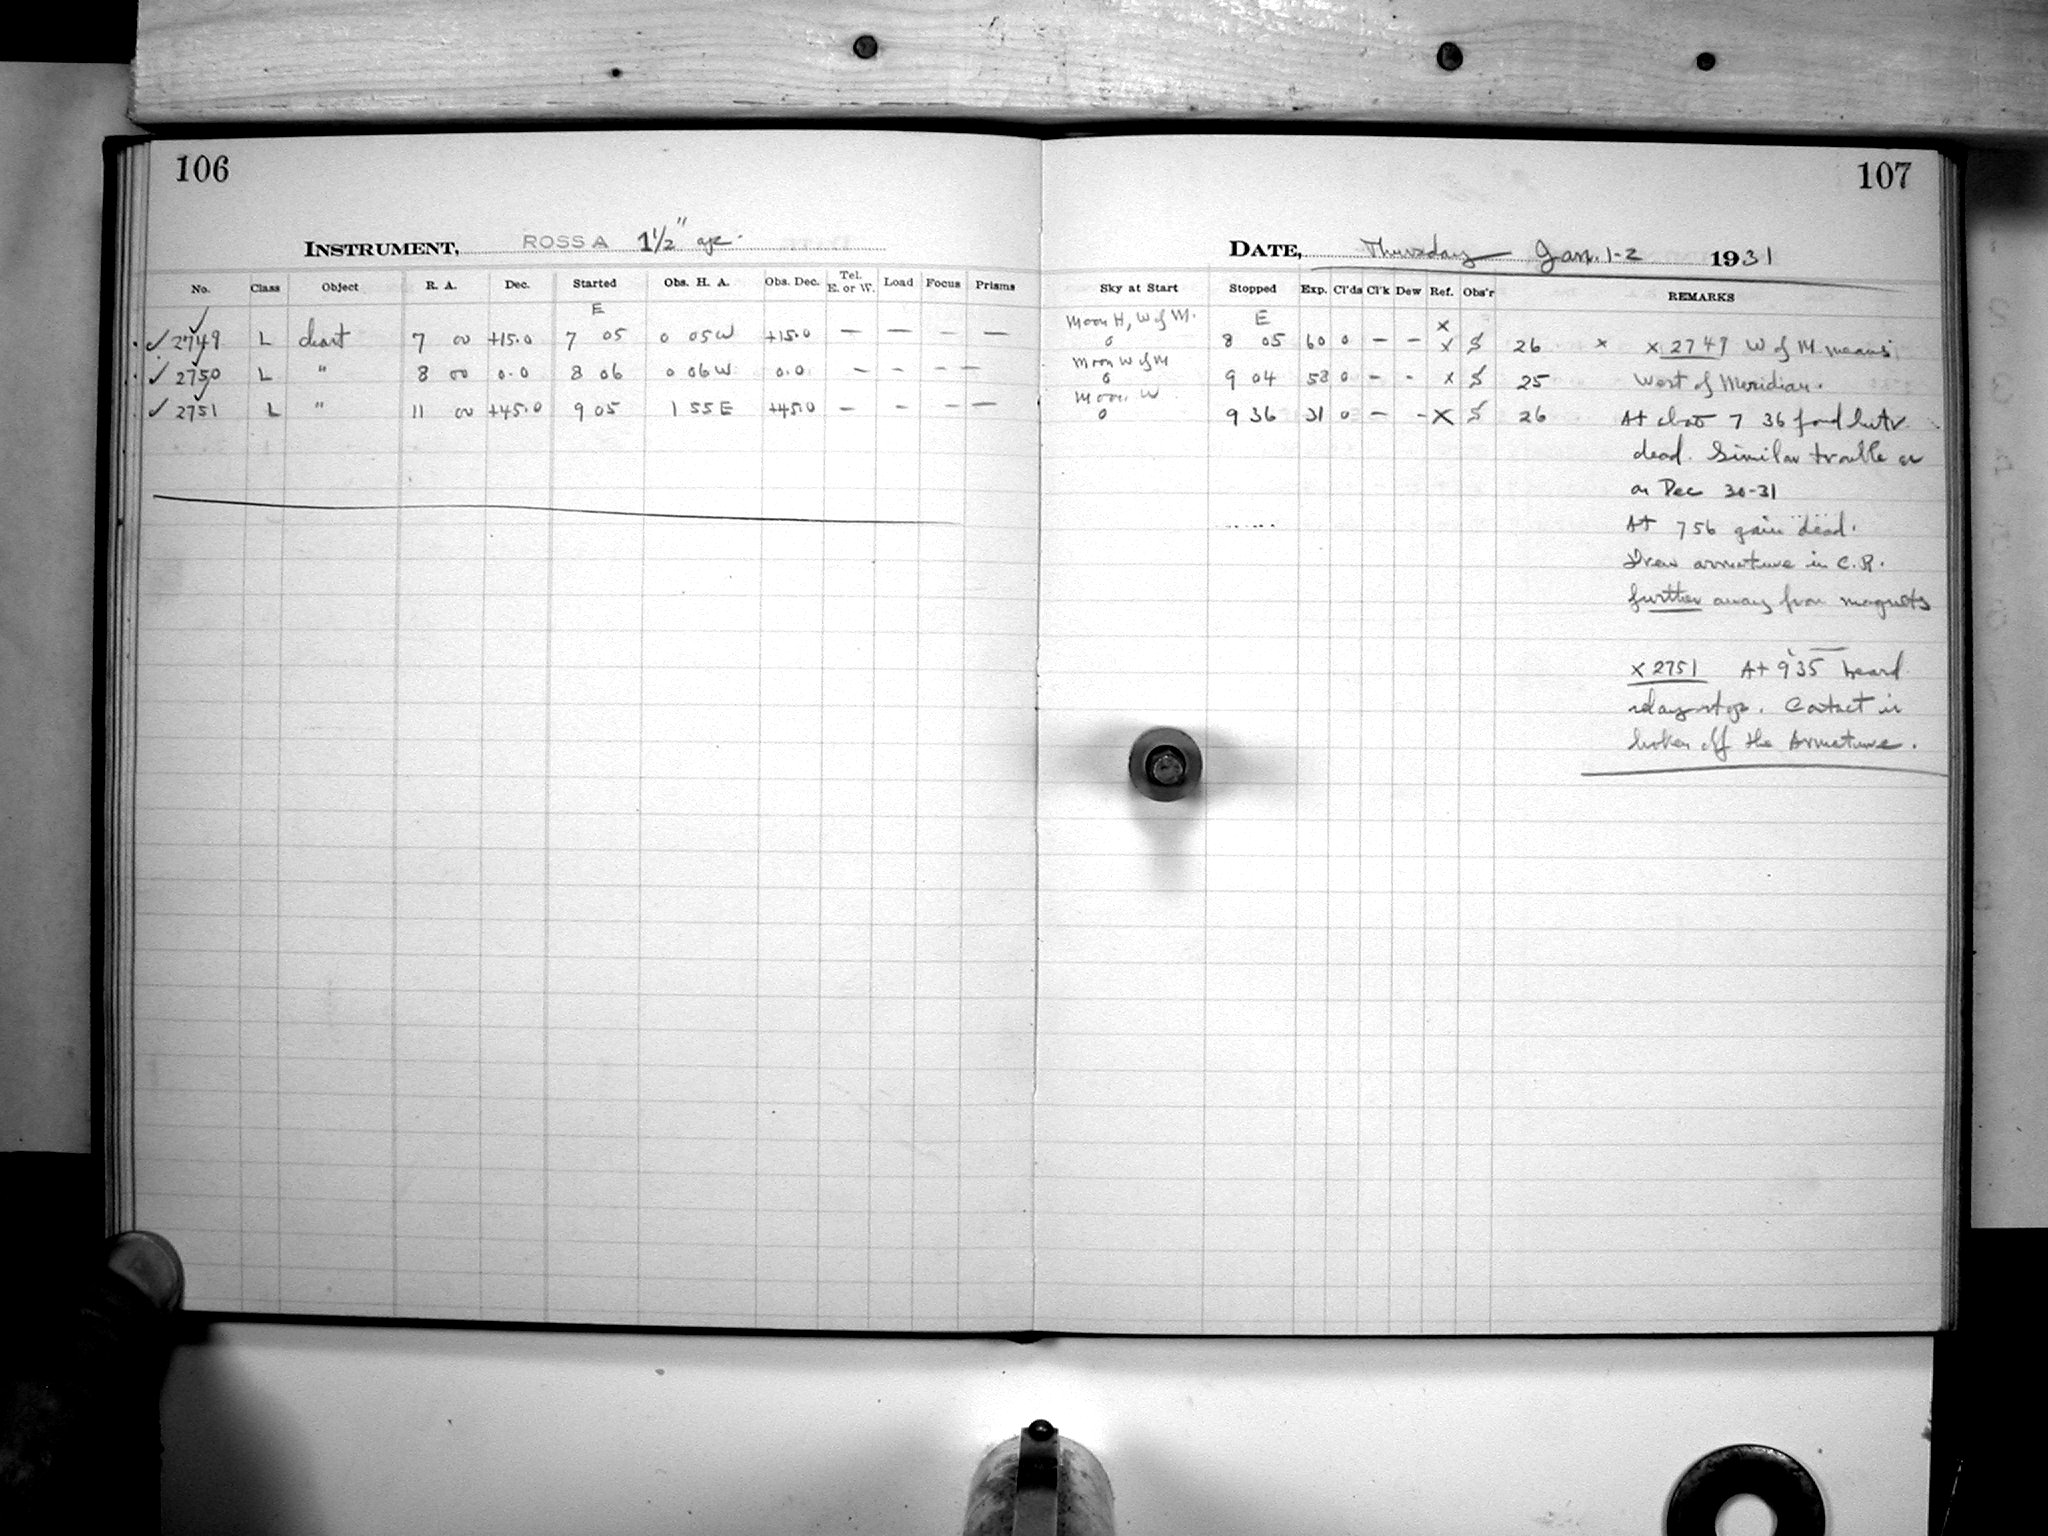 106
INSTRUMENT, ROSS A 1½" ap.
No. Class Object R. A. Dec. Started Obs. H. A. Obs. Dec. Tel. E. or W. Load Focus Prisms
E
✓ 2749 L chart 7 00 +15.0 7 05 0 05 W +15.0 — — — —
✓ 2750 L " 8 00 0.0 8 06 0 06 W 0.0 — — — —
✓ 2751 L " 11 00 +45.0 9 05 1 55 E +45.0 — — — —
107
DATE, Thursday Jan. 1-2 1931
Sky at Start Stopped Exp. Cl'ds Cl'k Dew Ref. Obs'r REMARKS
Moon H, W of M. E x
0 8 05 60 0 — — x S 26 x x 2749 W of M means
Moon W of M
0 9 04 58 0 — — x S 25 West of Meridian.
Moon W
0 9 36 31 0 — — x S 26 At 7 36
dead. Similar trouble
on Dec 30-31
At 7 56 again dead.
Drew armature in C.R.
further away from magnets
x 2751 At 9 35 heard
relay stop. Contact is
broken off the Armature.